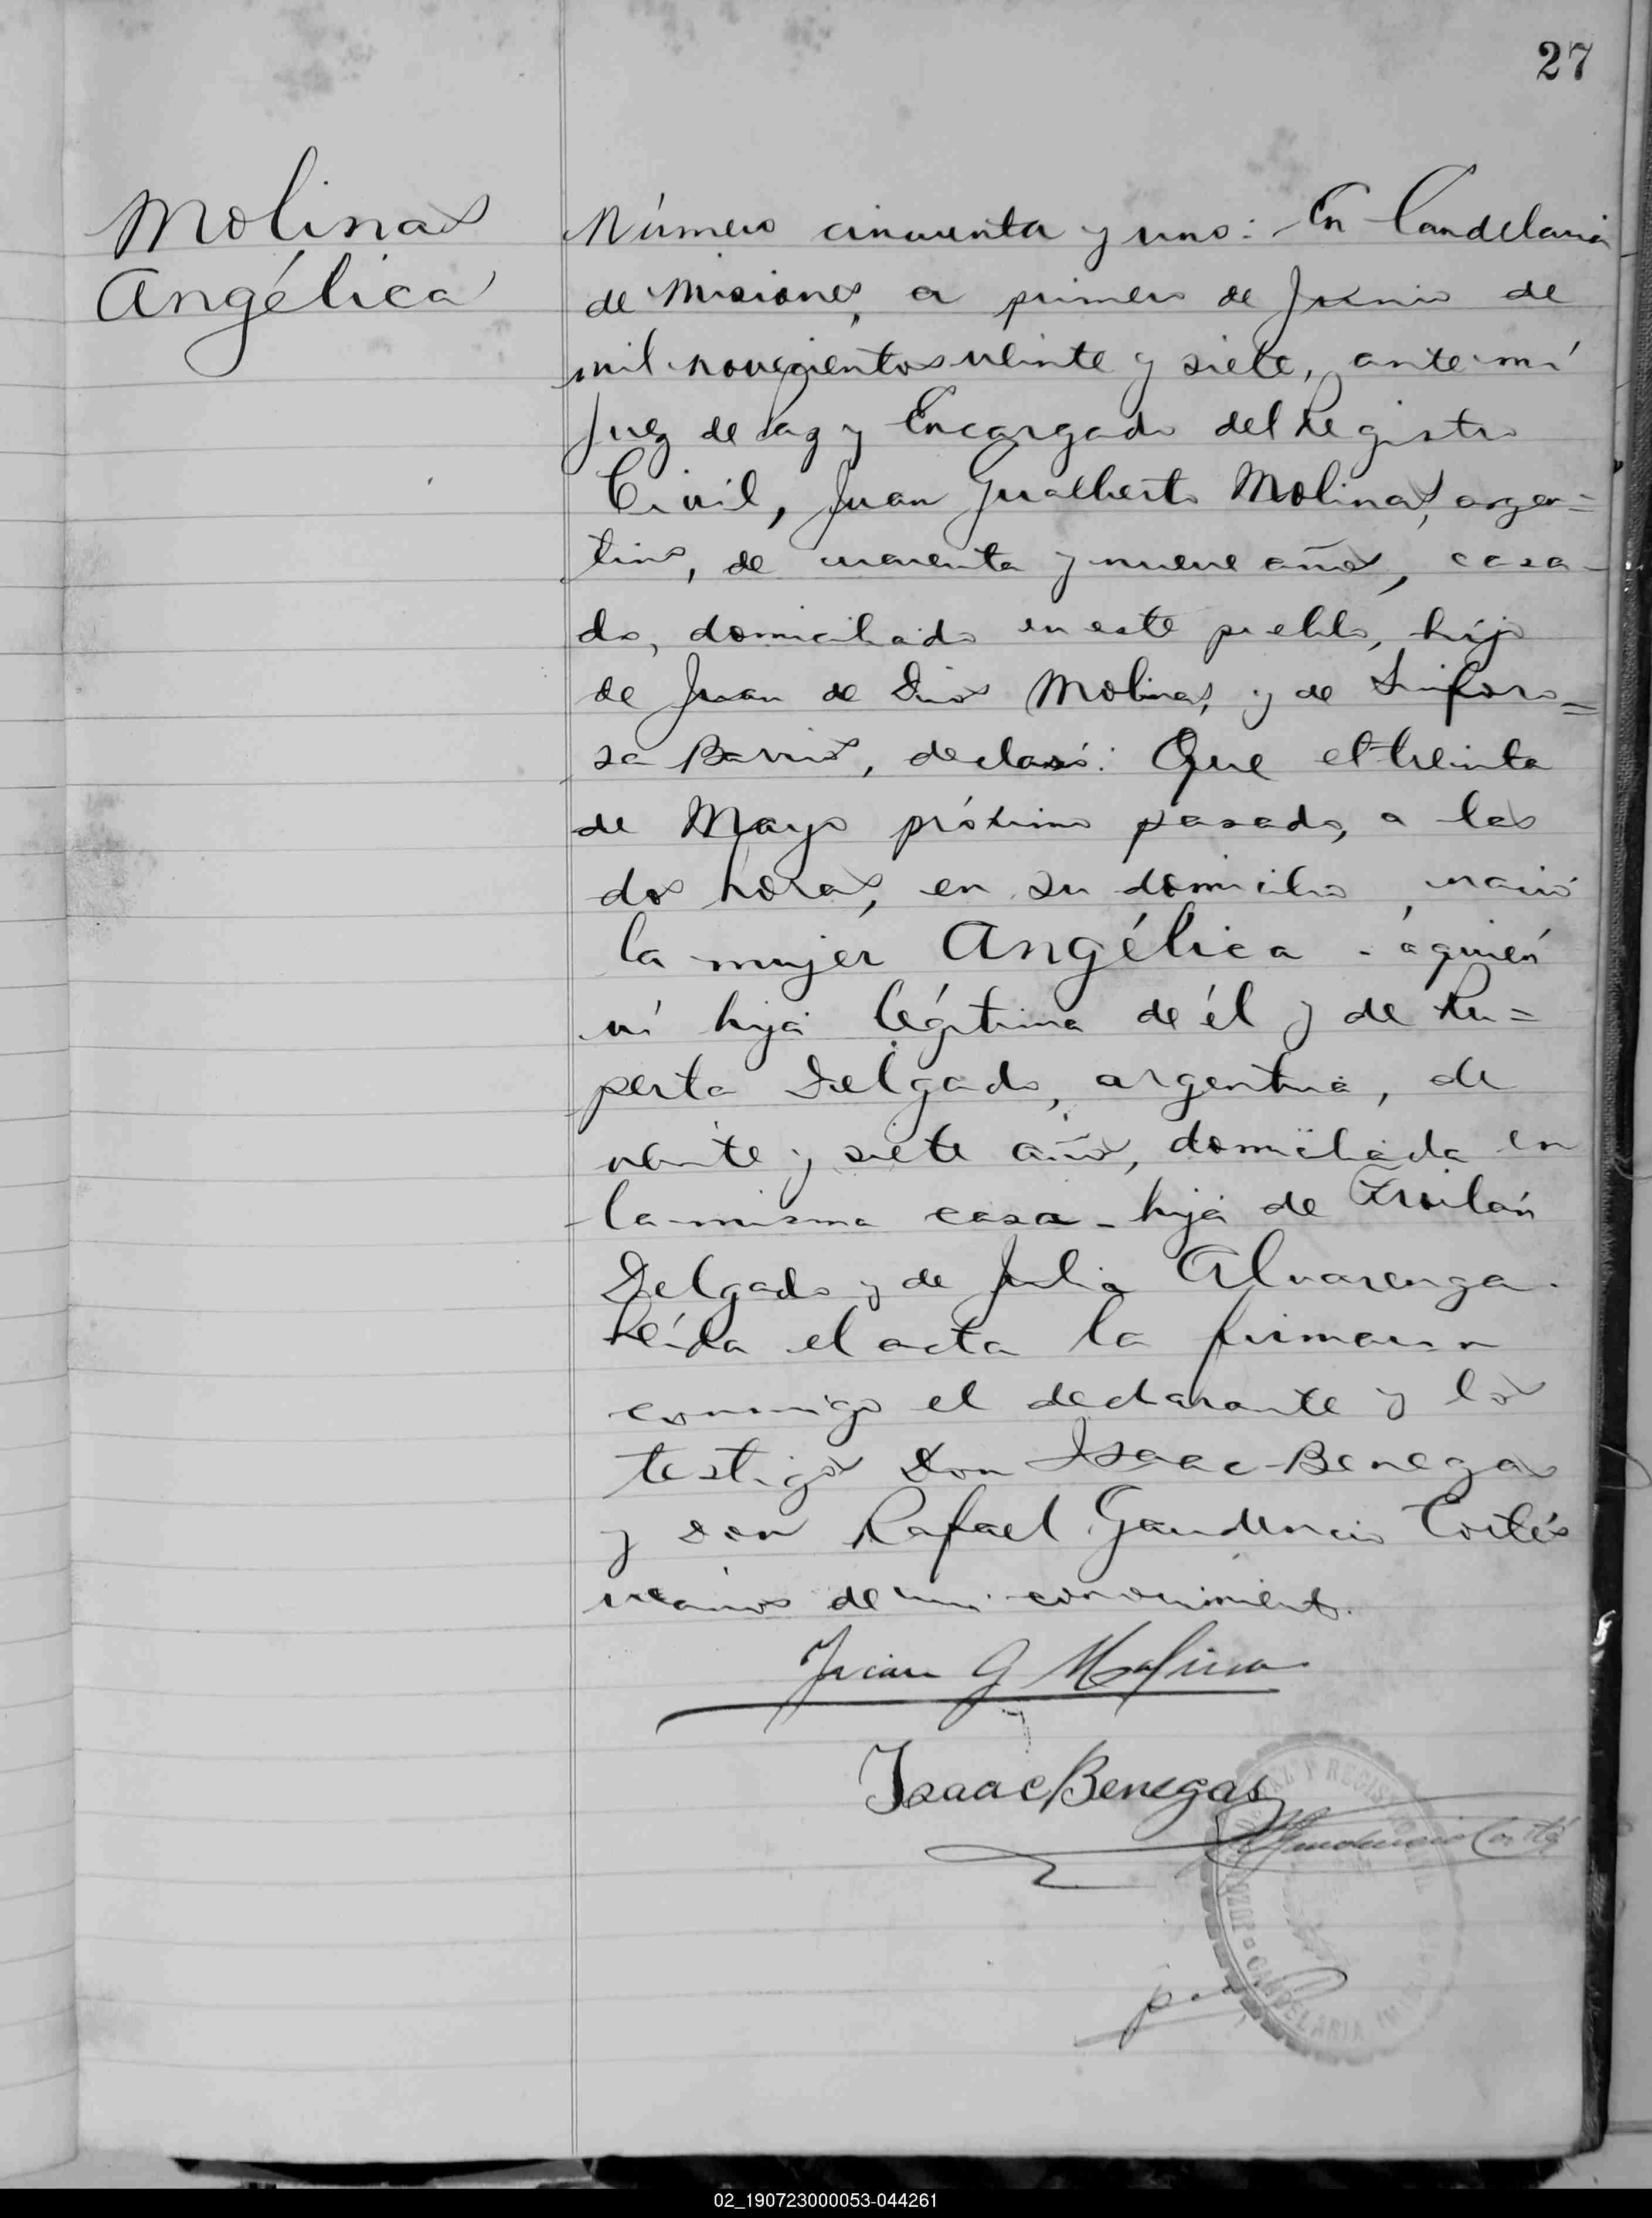 27
Molinas
Angélica
Número cincuenta y uno: En Candelaria
de Misiones, a primero de Junio de
mil novecientos veinte y siete, ante mí
Juez de Paz y Encargado del Registro
Civil, Juan Gualberto Molinas, argen=
tino, de cuarenta y nueve años, casa-
do, domiciliado en este pueblo, hijo
de Juan de Dios Molinas, y de Sinforo=
sa Barrios, declaró: Que el treinta
de Mayo próximo pasado, a las
dos horas, en su domicilio, nació
la mujer Angélica - á quién
ví hija légitima de él y de Ru=
perta Delgado, argentina, de
veinte y siete años, domiciliada en
la misma casa - hija de Froilán
Delgado y de Julia Alvarenga.
Leída el acta la firmaron
conmigo el declarante y los
testigos Don Isaac Benegas
y don Rafael Gaudencio Cortés
vecinos de mi conocimiento.
Juan G Molina
Isaac Benegas
Gaudencio Cortés
JUZGADO DE PAZ Y REGISTRO CIVIL
CANDELARIA
02_190723000053-044261